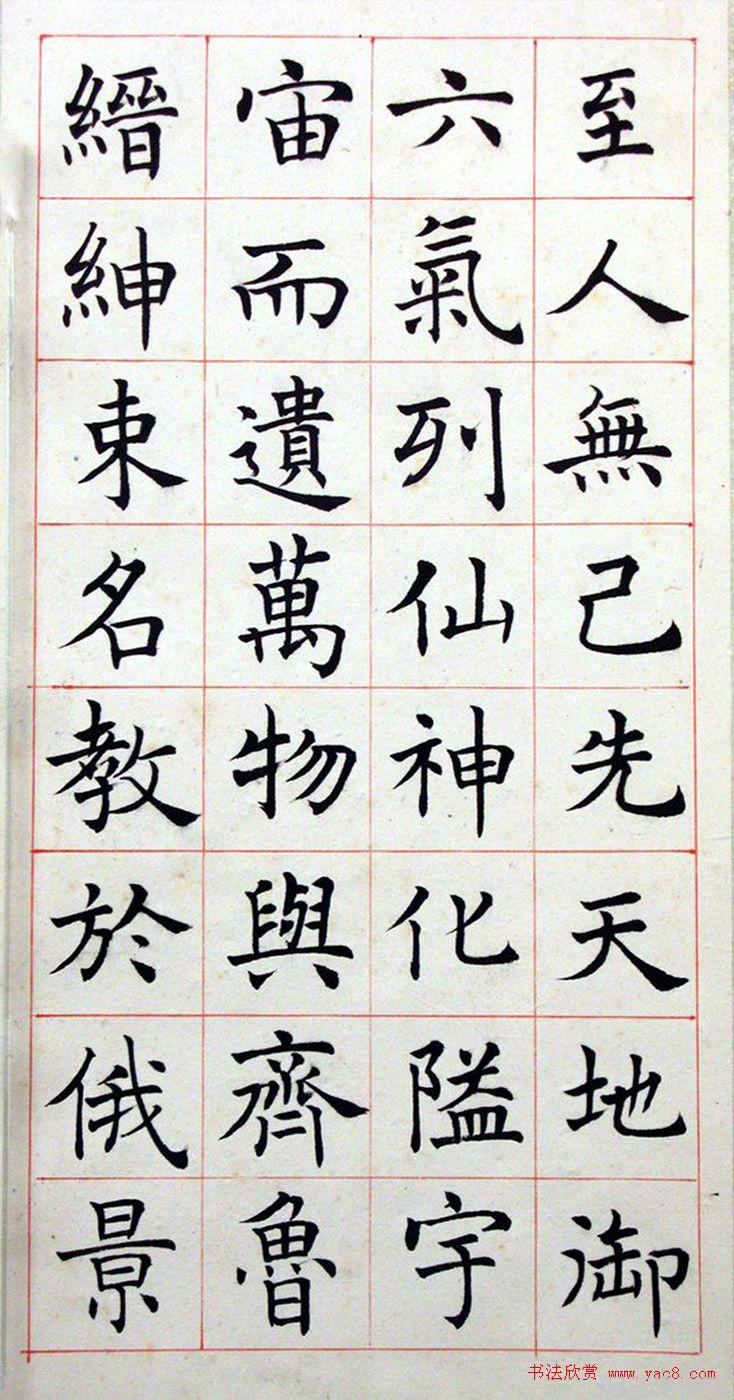 至人無己先天地御
六氣列仙神化隘宇
宙而遺萬物與齊魯
縉紳束名教於俄景
书法欣赏 www.yac8.com